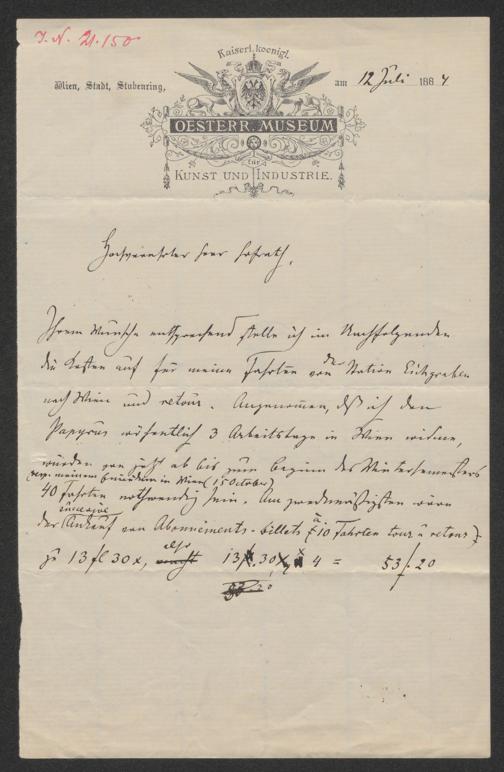 J. N. 21.150
Kaiserl. koenigl.
Wien, Stadt, Stubenring, am 12 Juli 1884
OESTERR. MUSEUM
für
KUNST UND INDUSTRIE.
Hochverehrter Herr Hofrath,
Ihrem Wunsche entsprechend stelle ich im Nachfolgenden
die Kosten auf für meine Fahrten von der Station Eichgraben
nach Wien und retour. Angenommen, daß ich den
Papyrus wöchentlich 3 Arbeitstage in Wien widme,
würden von jetzt ab bis zum Beginn des Wintersemesters
resp. meinem Eintreffen in Wien (15 October)
40 Fahrten nothwendig sein. Am zweckmäßigsten wäre
der Ankauf von Abonnements-billets (à 10 Fahrten tour u retour)
zu 13 fl 30 x, also 13 fl. 30 x x 4 = 53 f. 20